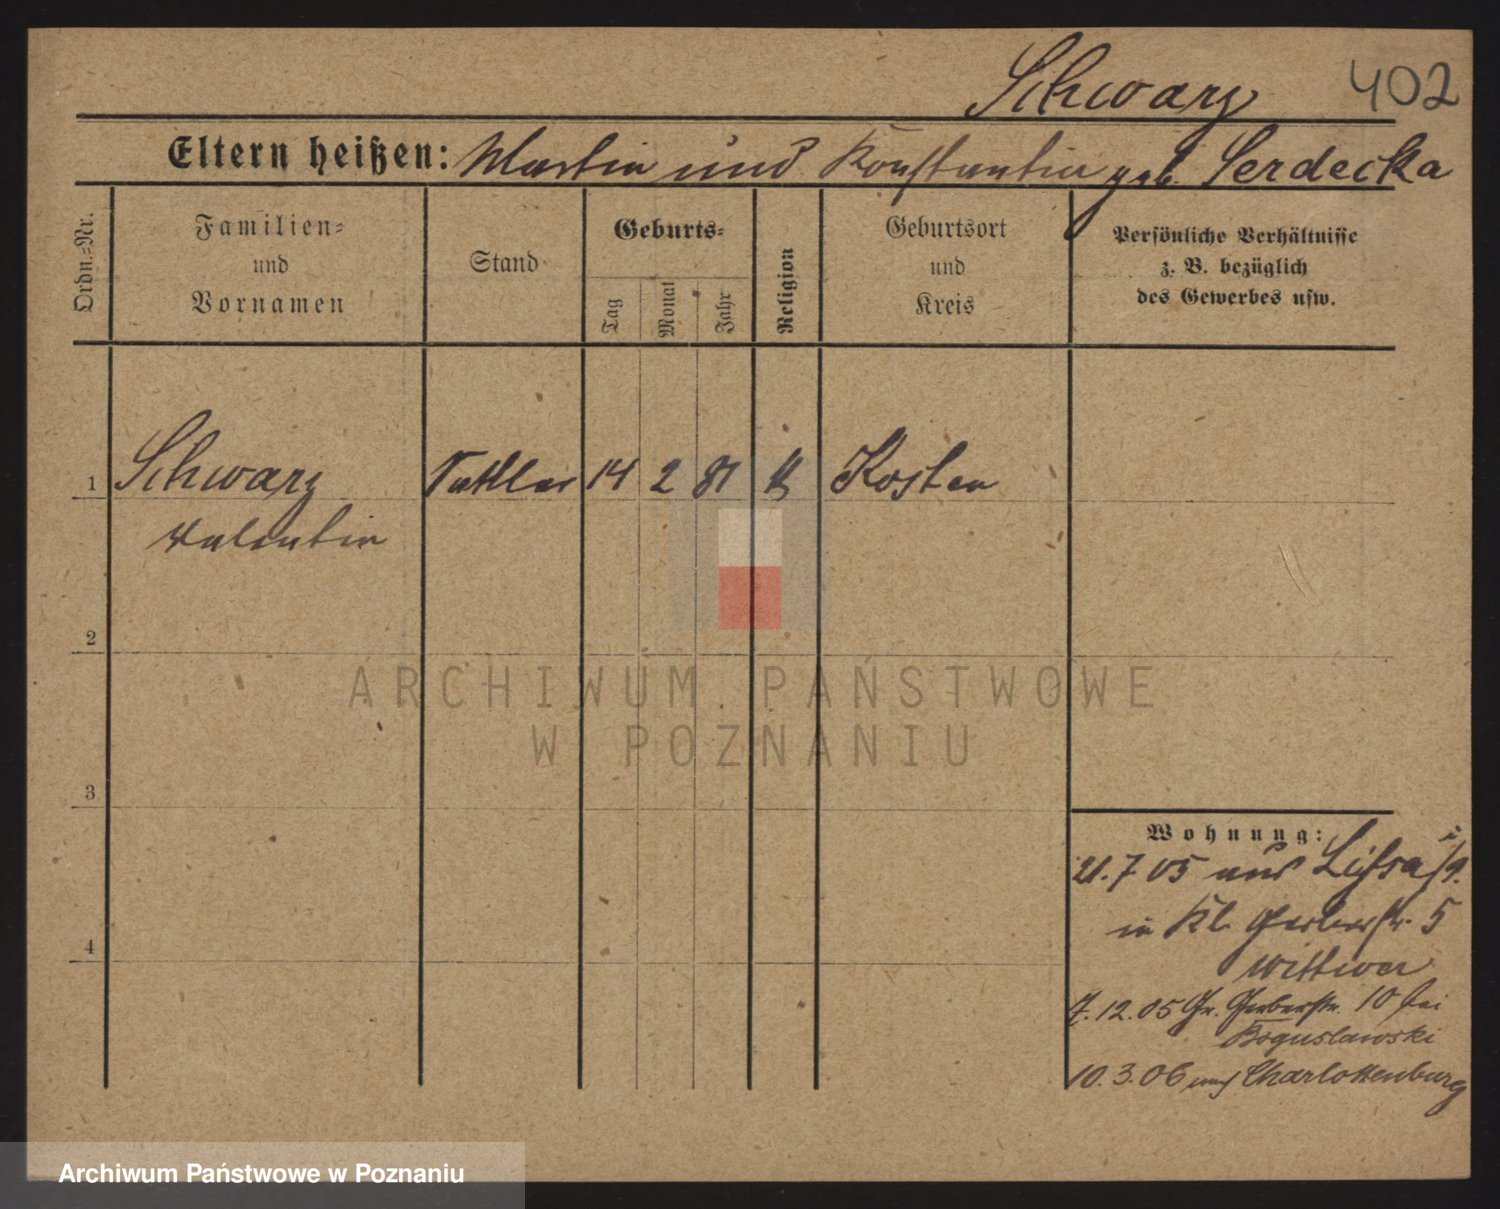 Schwarz 402
Eltern heißen: Martin und Konstantin geb. Serdecka
Ordn.-Nr.
Familien-
und
Vornamen
Stand
Geburts-
Tag
Monat
Jahr
Religion
Geburtsort
und
Kreis
Persönliche Verhältnisse
z. B. bezüglich
des Gewerbes usw.
1 Schwarz Sattler 14 2 81 k Kosten
Valentin
2
3
4
Wohnung:
21.7 05 aus Lissa i/P.
in Kl. Gerberstr. 5
Wittwer
7.12.05 Gr. Gerberstr. 10 bei
Boguslawski
10.3.06 nach Charlottenburg
ARCHIWUM PAŃSTWOWE
W POZNANIU
Archiwum Państwowe w Poznaniu